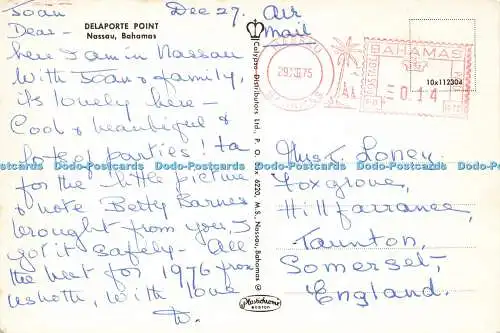 Joan
Dec 27.
Air
Mail
DELAPORTE POINT
Nassau, Bahamas
Dear -
here I am in Nassau
with Joan & family,
it's lovely here -
Cool & beautiful &
lots of parties! ta
for the little picture
& note Betty Barnes
brought from you, I
got it safely - All
the best for 1976 from
us both, with love
Calypso Distributors Ltd., P. O. Box 6220, M.S., Nassau, Bahamas ©
Plastichrome
BOSTON
29 XII 75
BAHAMAS
POSTAGE
0.14
10x112304
Mrs. T. Loney.
Foxgrove,
Hillfarrance,
Taunton,
Somerset,
England.
Dodo-Postcards Dodo-Postcards Dodo-Postcards Dodo-Postcards